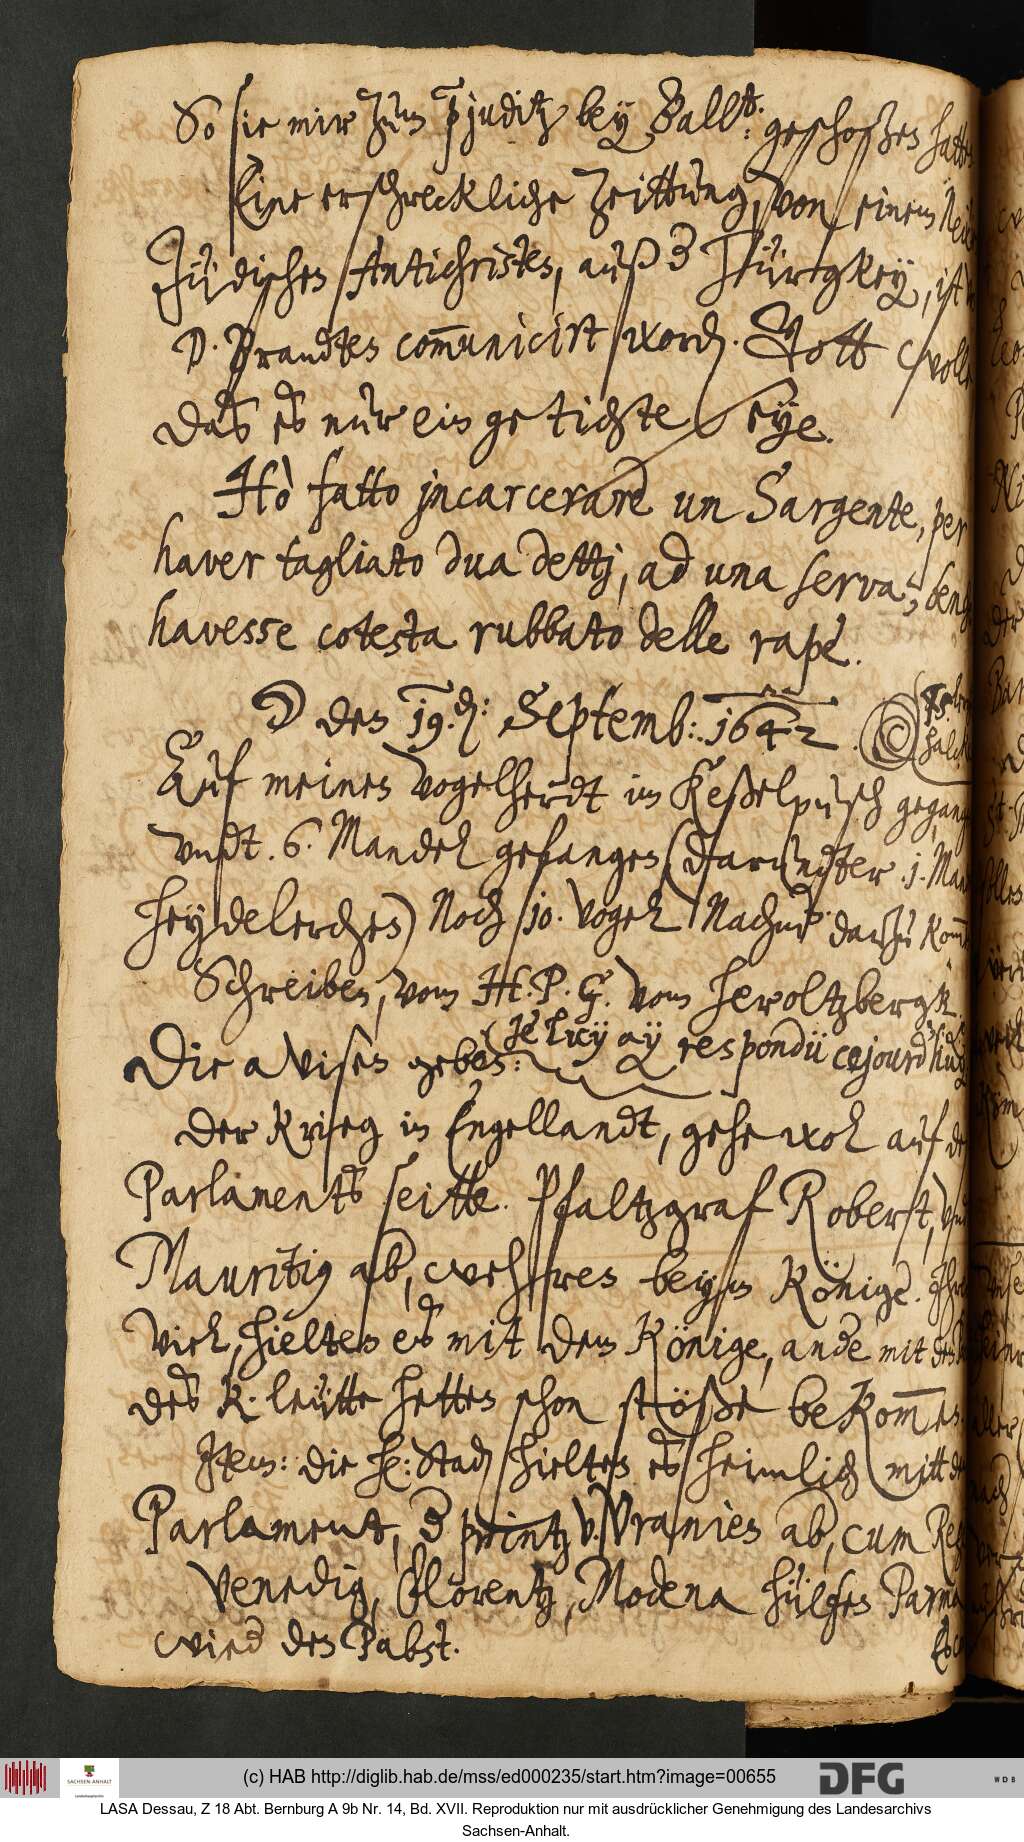 So sie mir zum præjuditz bey Ball: geschoßen hatten
Eine erschreckliche Zeittung, von einem
Jüdischen Antichristen, auß d Türgkey, ist
D. Brandten com̅unicirt word. Gott wolle
das es nur ein getichte seye.
Hò fatto jncarcerare un Sargente, per
haver tagliato dua dettj, ad una serva,
havesse cotesta rubbato delle rape.
den 19. Septemb: 1642.
Auf meinen Vogelherdt im Keßelpusch
vndt. 6. Mandel gefangen (darundter .j.
heydelerchen) Noch 10. Vogel Nachm. darzu
Schreiben, vom H. P. G. vom heroltzbergk.
Die avisen geben: (Je luy ay respondü cejourd'huy
der Krieg in Engellandt, gehe wol auf
Parlaments seitte. Pfaltzgraf Robert,
Mauritius ab, wehren beym Könige.
Viel, hielten es mit dem Könige, ande mit
des K. leütte hetten schon stöße bekom̅en.
Jtem: die H: Stad hielten es heimlich mitt
Parlament, d printz v. Vranien ab, cum
Venedig, Florentz, Modena hülfen Parma
wied den Pabst.
(c) HAB http://diglib.hab.de/mss/ed000235/start.htm?image=00655
SACHSEN-ANHALT
DFG
WDB
LASA Dessau, Z 18 Abt. Bernburg A 9b Nr. 14, Bd. XVII. Reproduktion nur mit ausdrücklicher Genehmigung des Landesarchivs
Sachsen-Anhalt.